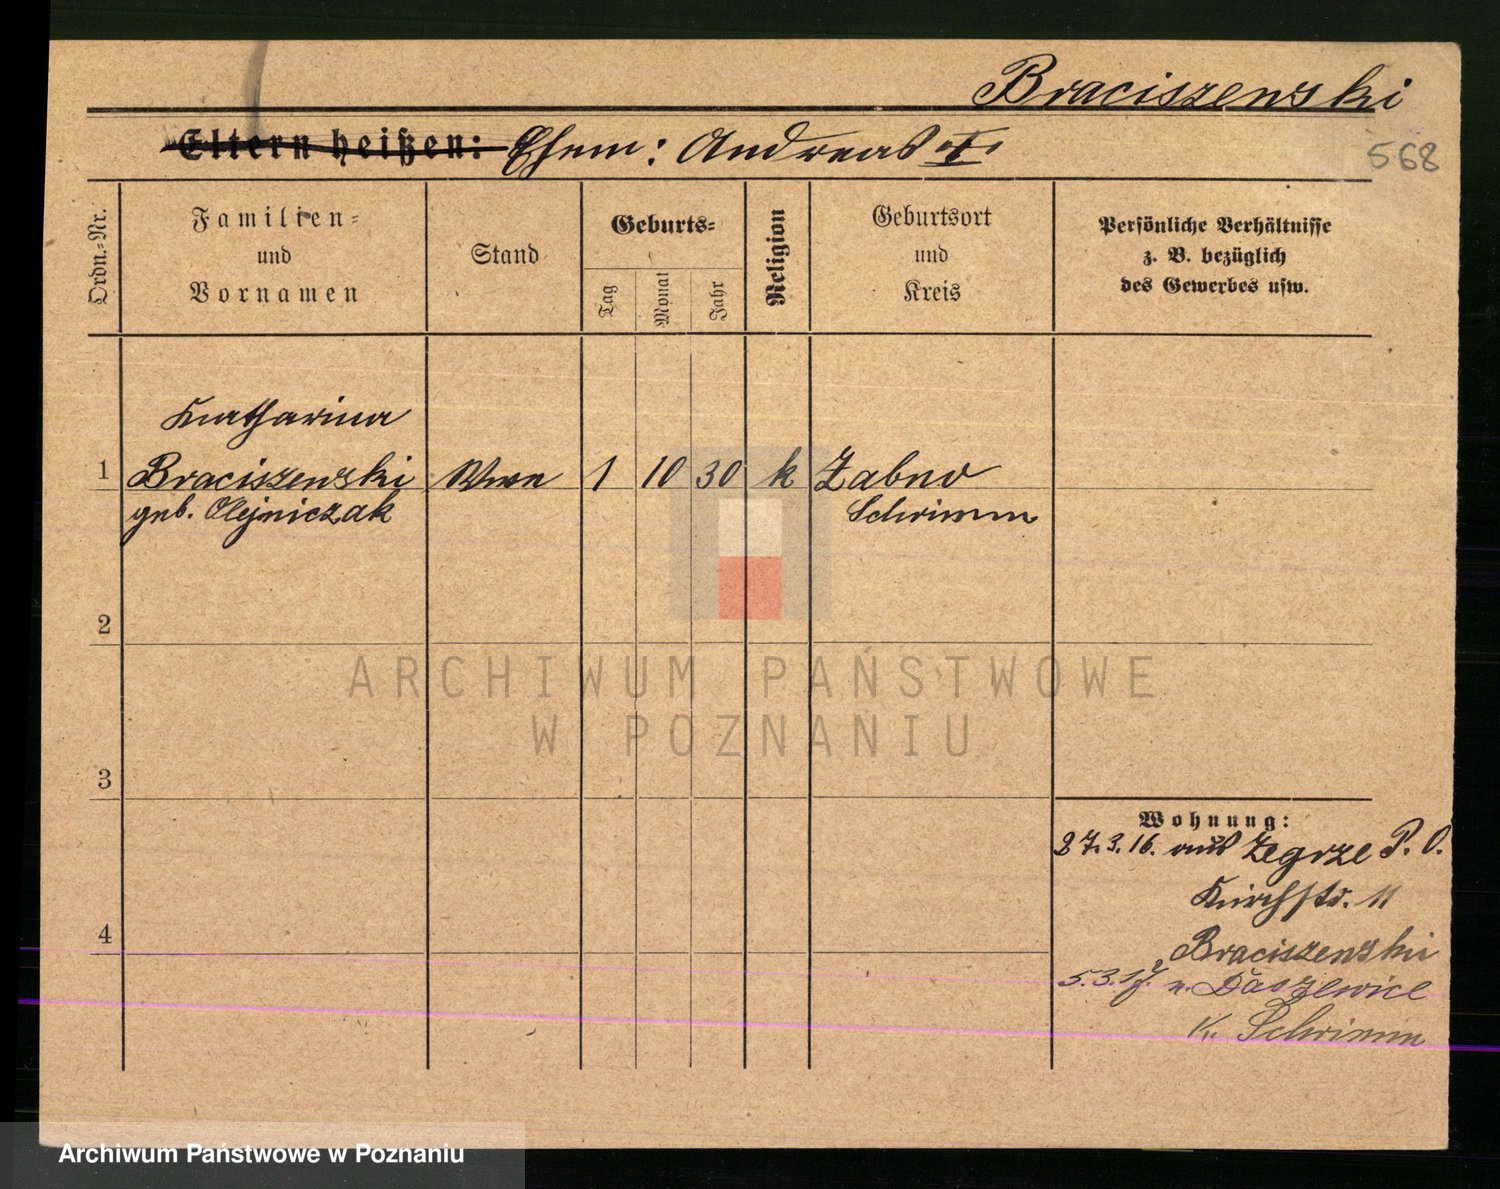 Braciszewski
Eltern heißen: Ehem: Andreas
568
Ordn.=Nr.
Familien=
und
Vornamen
Stand
Geburts=
Tag
Monat
Jahr
Religion
Geburtsort
und
Kreis
Persönliche Verhältnisse
z. B. bezüglich
des Gewerbes usw.
Katharina
1 Braciszewski Wwe 1 10 30 k Żabno
geb. Olejniczak Schrimm
2
3
4
Wohnung:
27.3.16. aus Zegrze P. O.
Kirchstr. 11
Braciszewski
5.3.17. n. Daszewice
K. Schrimm
ARCHIWUM PAŃSTWOWE
W POZNANIU
Archiwum Państwowe w Poznaniu